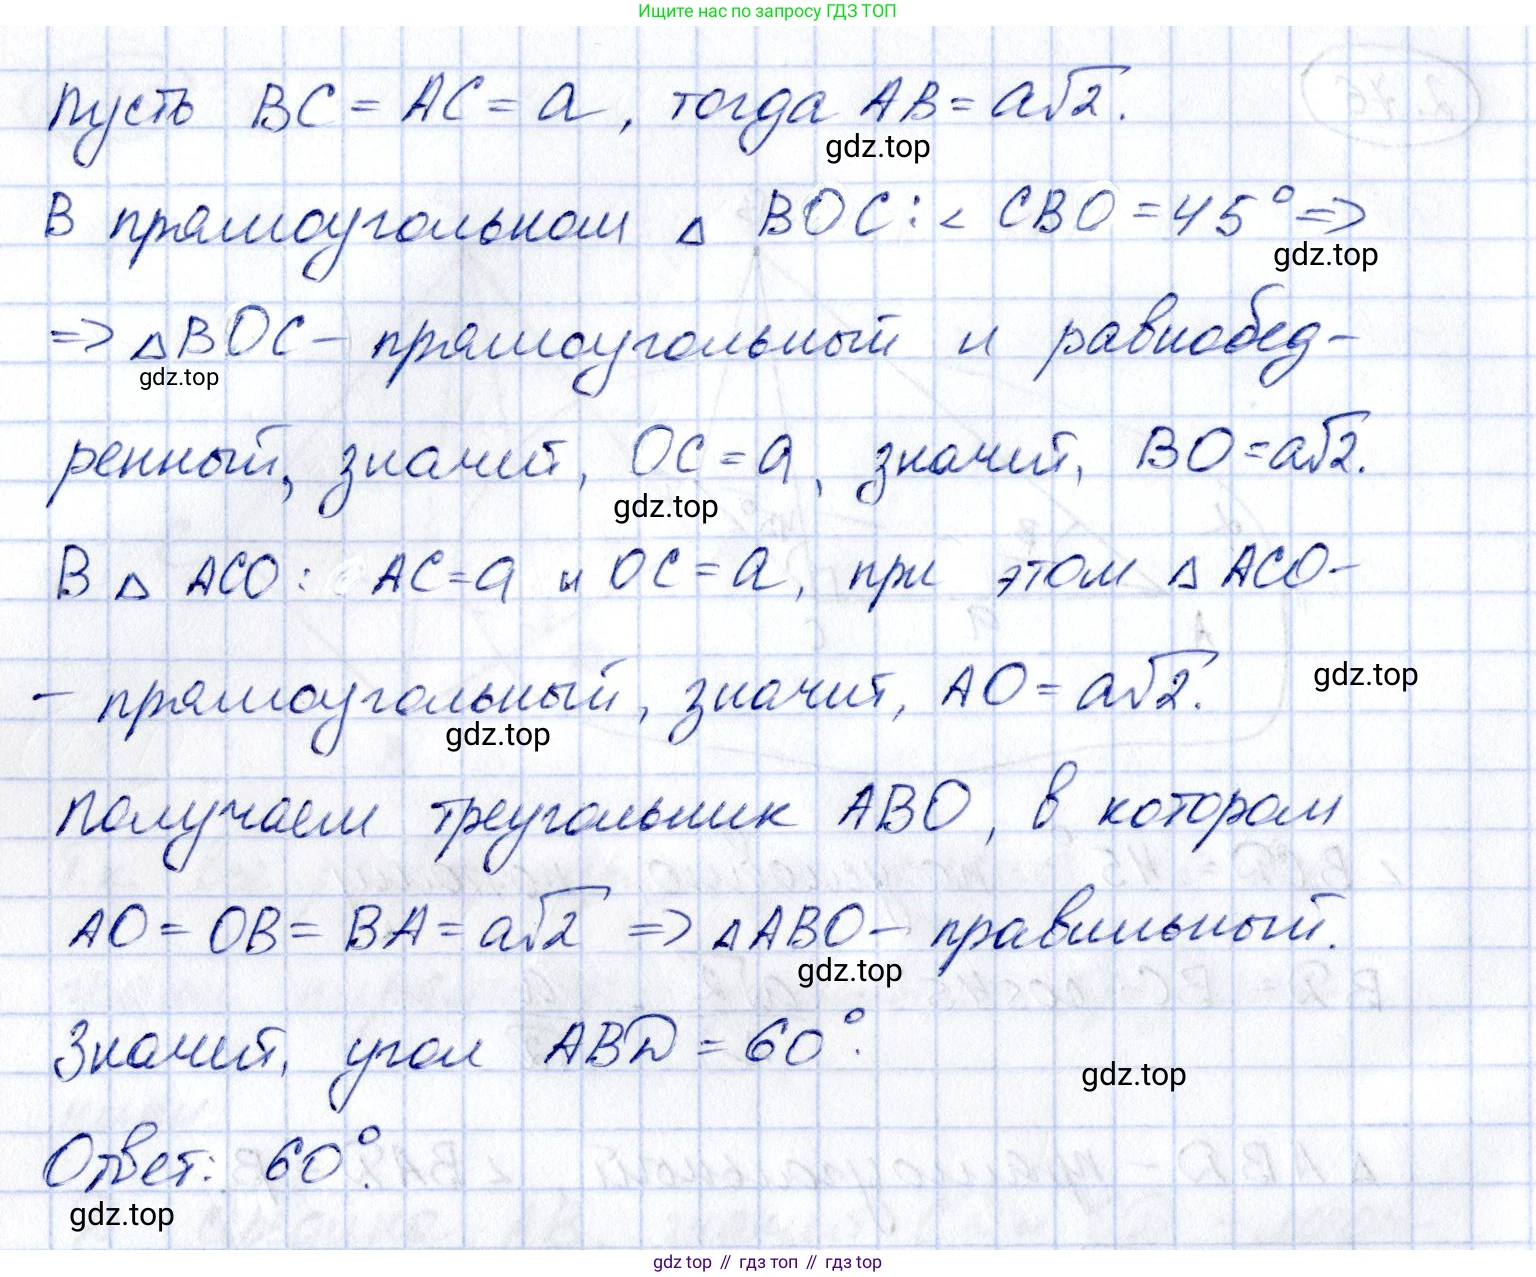 Ищите нас по запросу ГДЗ ТОП
Пусть BC = AC = a, тогда AB = a√2.
gdz.top
В прямоугольном △ BOC: < CBO = 45° =>
gdz.top
=> △BOC - прямоугольный и равнобед-
gdz.top
ренный, значит, OC = a, значит, BO = a√2.
gdz.top
В △ ACO: AC = a и OC = a, при этом △ ACO -
- прямоугольный, значит, AO = a√2.
gdz.top
gdz.top
Получаем треугольник ABO, в котором
AO = OB = BA = a√2 => △ABO - правильный.
gdz.top
Значит, угол ABD = 60°.
gdz.top
Ответ: 60°.
gdz.top
gdz.top // гдз топ // гдз top